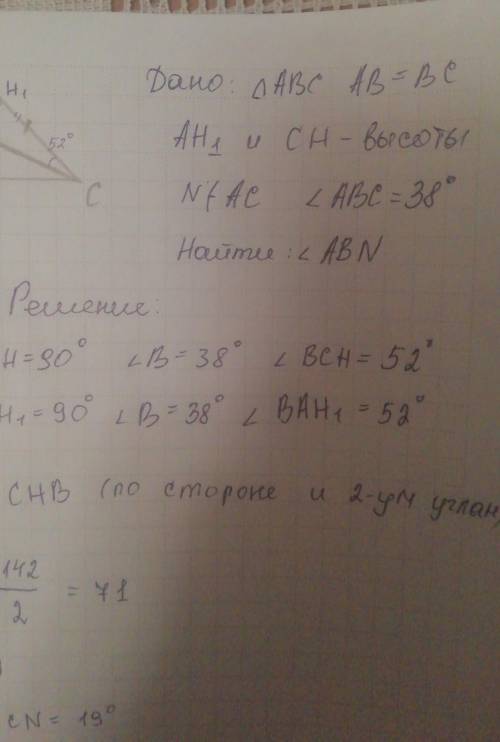 H₁ Дано: △ABC AB = BC
52°
AH₁ и CH - высоты
C
N ∈ AC ∠ABC = 38°
Найти: ∠ABN
Решение:
H = 90° ∠B = 38° ∠BCH = 52°
H₁ = 90° ∠B = 38° ∠BAH₁ = 52°
CHB (по стороне и 2-ум углам)
142
2
= 71
CN = 19°